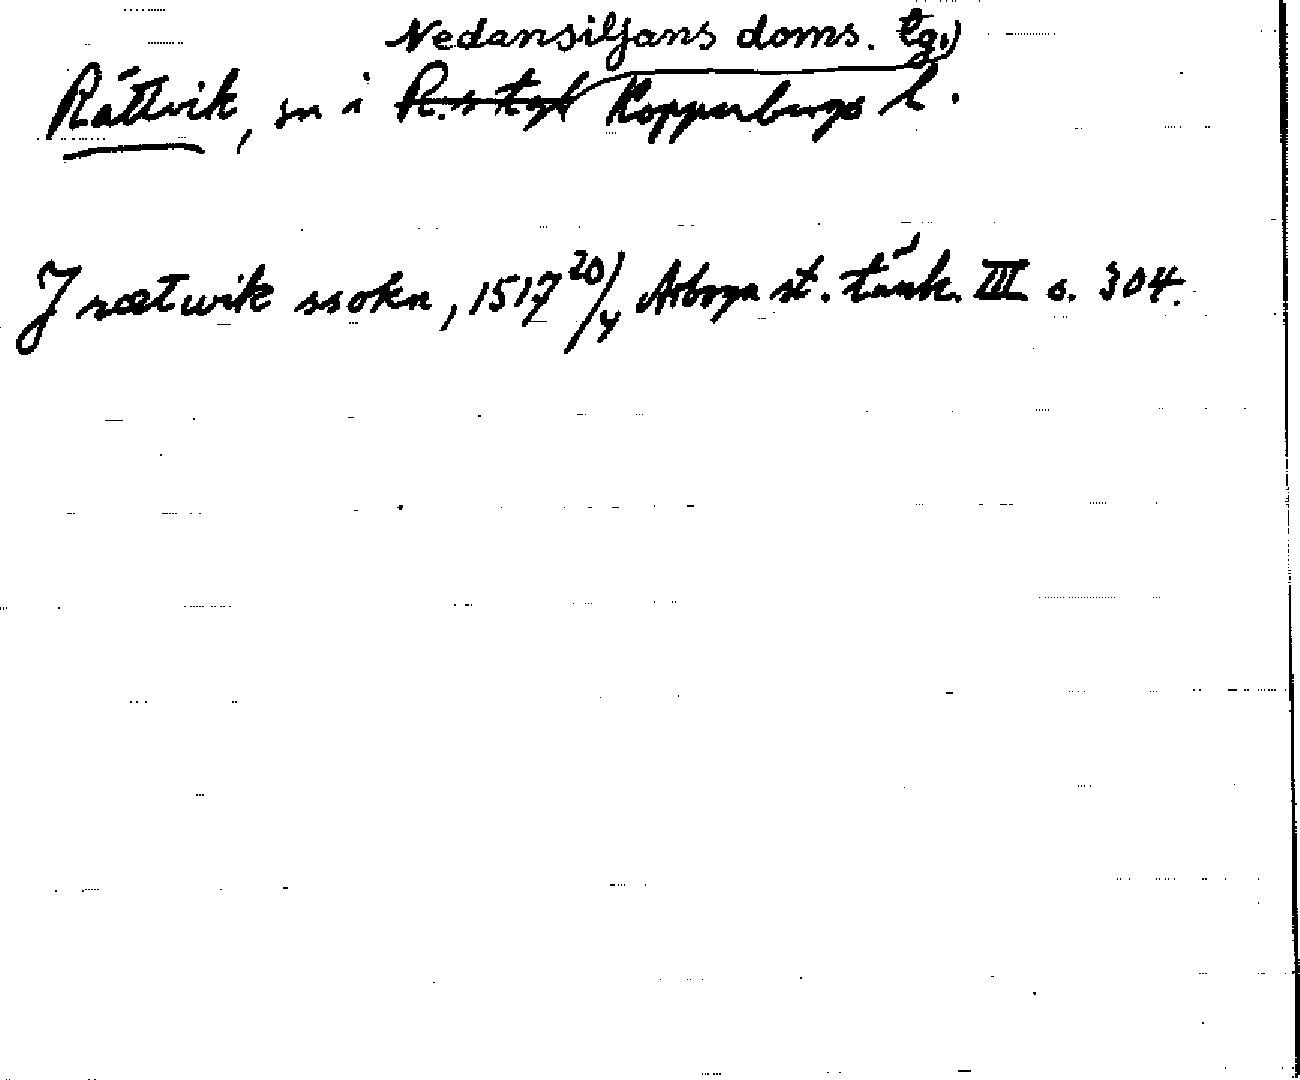 Nedansiljans doms. tg.)
Rättvik, sn i R. s tgl Kopparbergs l.
J rætwik ssokn, 1517 20/4 Arboga st. tänk. III s. 304.